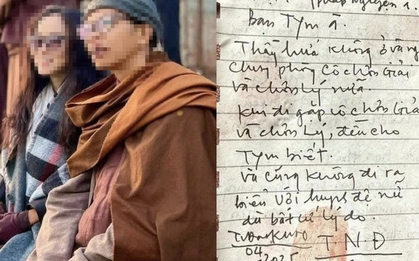 Pháp Nguyện 1.
Ban Tym á.
Thầy hứa không ở
chung phòng cô chơn Giải
và chơn lý nữa.
Khi đi gặp cô chơn Giải
và chơn Lý, đều cho
Tym biết.
và cũng không đi ra
biển với huynh đệ nữ
dù bất cứ lý do.
04
2025
T.N.Đ